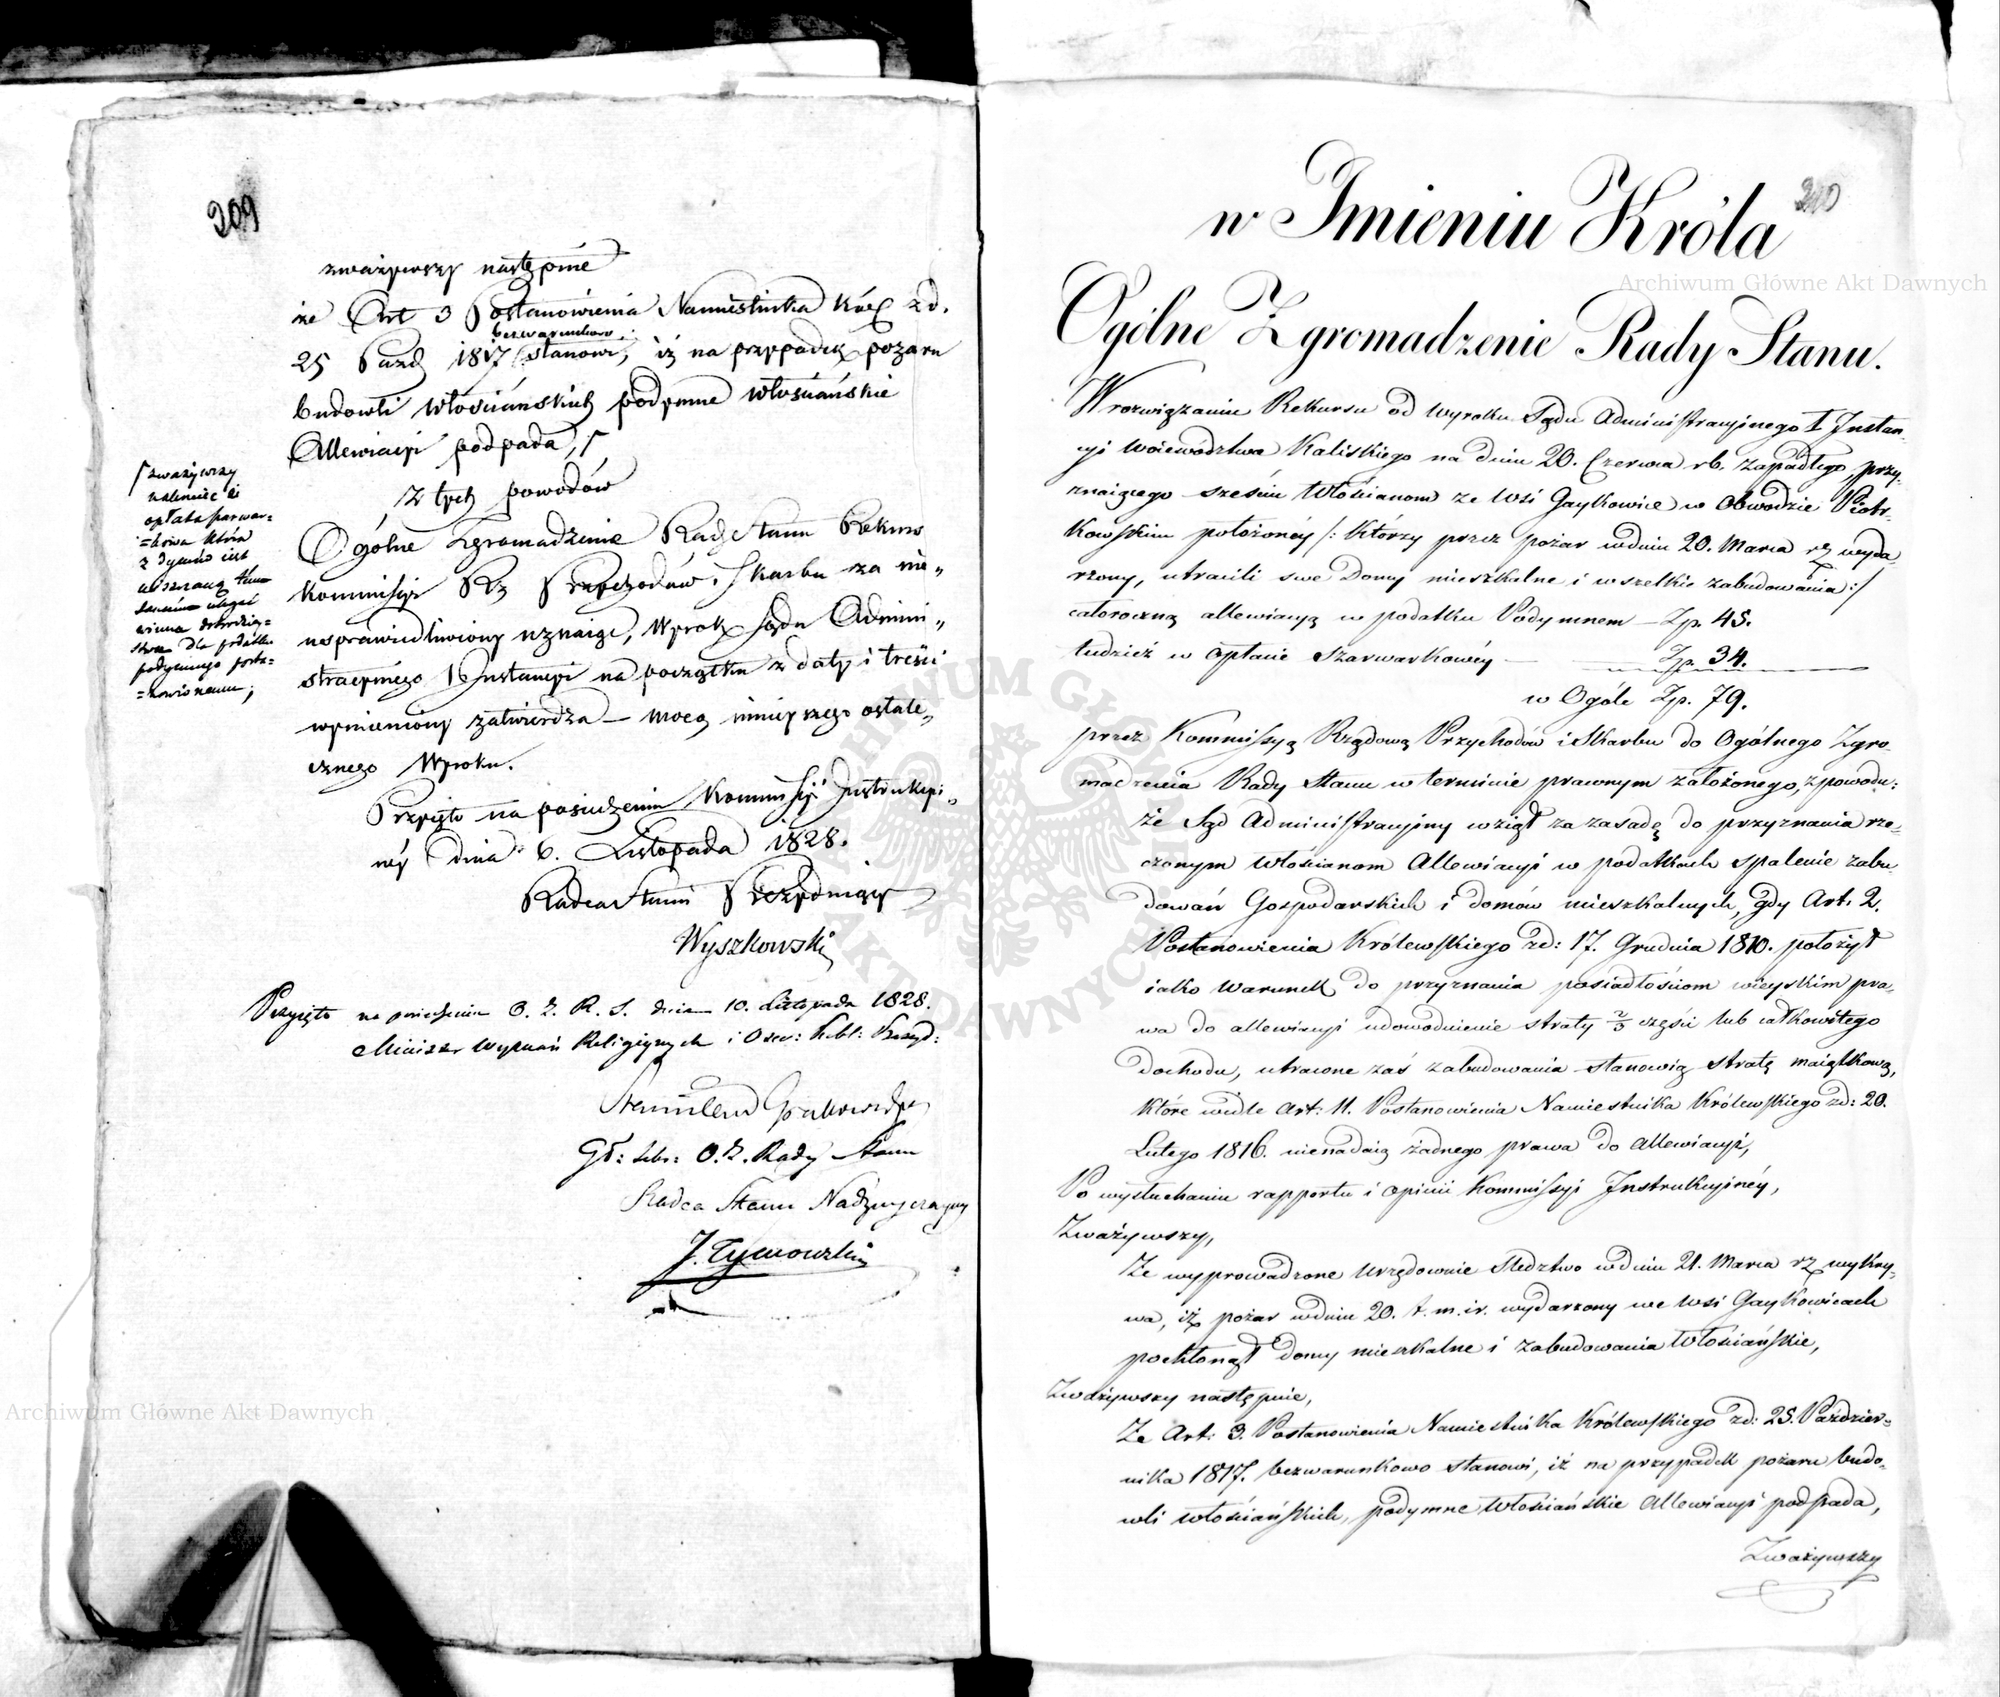 209
zważywszy następnie
że Art 3 Postanowienia Namiestnika Król z d.
bezwarunkowo
25 Paźd 1817 stanowi, iż na przypadek pożaru
budowli włościańskich podymne włościańskie
Allewiacyi podpada,
zważywszy
nakoniec iż
opłata szarwar=
=kowa która
z dymów iest
uiszczaną temu
samemu uledz
winna dobrodziey=
stwu dla podatku
podymnego posta=
=nowionemu;
Z tych powodów
Ogólne Zgromadzenie Rady Stanu Rekurs
Kommissyi Rz Przychodów i Skarbu za nie„
usprawiedliwiony uznaiąc, Wyrok Sądu Admini„
stracyinego I Instancyi na początku z daty i treści
wymieniony zatwierdza – mocą ninieyszego ostate„
cznego Wyroku.
Przyięto na posiedzeniu Kommissyi Instrukcyi„
néy dnia 6. Listopada 1828.
Radca Stanu Prezyduiący
Wyszkowski
Przyięto na posiedzeniu O. Z. R. S. dnia 10. Listopada 1828.
Minister Wyznań Religiynych i Ośw: Publ: Prezyd:
Stanisław Grabowski
Gł: Sekr: O. Z. Rady Stanu
Radca Stanu Nadzwyczayny
J. Tymowski
210
w Imieniu Króla
Ogólne Zgromadzenie Rady Stanu.
W rozwiązaniu Rekursu od wyroku Sądu Administracyjnego I Instan-
cyi Woiewództwa Kaliskiego na dniu 20. Czerwca rb. zapadłego, przy-
znaiącego sześciu Włościanom ze wsi Gaykowice w Obwodzie Piotr-
kowskim położonéy /: którzy przez pożar w dniu 20. Marca rz wyda
rzony, utracili swe Domy mieszkalne i wszelkie zabudowania :/
całoroczną allewiacyą w podatku Podymnem – Zp. 45.
tudzież w opłacie szarwarkowéy – Zp. 34.
w Ogóle Zp. 79.
przez Kommissyą Rządową Przychodów i Skarbu do Ogólnego Zgro-
madzenia Rady Stanu w terminie prawnym założonego, z powodu:
że Sąd Administracyjny wziął za zasadę do przyznania rze-
czonym Włościanom Allewiacyi w podatkach spalenie zabu
dowań Gospodarskich i domów mieszkalnych, gdy Art. 2.
Postanowienia Królewskiego zd: 17. Grudnia 1810. położył
iako warunek do przyznania posiadłościom wieyskim pra-
wa do allewiacyi udowodnienie straty 2/3 części lub całkowitego
dochodu, utracone zaś zabudowania stanowią stratę maiątkową,
które wedle Art: 11. Postanowienia Namiestnika Królewskiego zd: 20.
Lutego 1816. nienadaią żadnego prawa do allewiacyi,
Po wysłuchaniu rapportu i opinii Kommissyi Instrukcyjnéy,
Zważywszy,
Że wyprowadzone urzędownie śledztwo w dniu 21. Marca rz wykry-
wa, iż pożar w dniu 20. t. m. i r. wydarzony we wsi Gaykowicach
pochłonął domy mieszkalne i zabudowania Włościańskie,
Zważywszy następnie,
Że Art: 3. Postanowienia Namiestnika Królewskiego zd: 25. Paździer-
nika 1817. bezwarunkowo stanowi, iż na przypadek pożaru budo-
wli włościańskich, podymne Włościańskie Allewiacyi podpada,
Zważywszy
Archiwum Główne Akt Dawnych
Archiwum Główne Akt Dawnych
ARCHIWUM GŁÓWNE AKT DAWNYCH